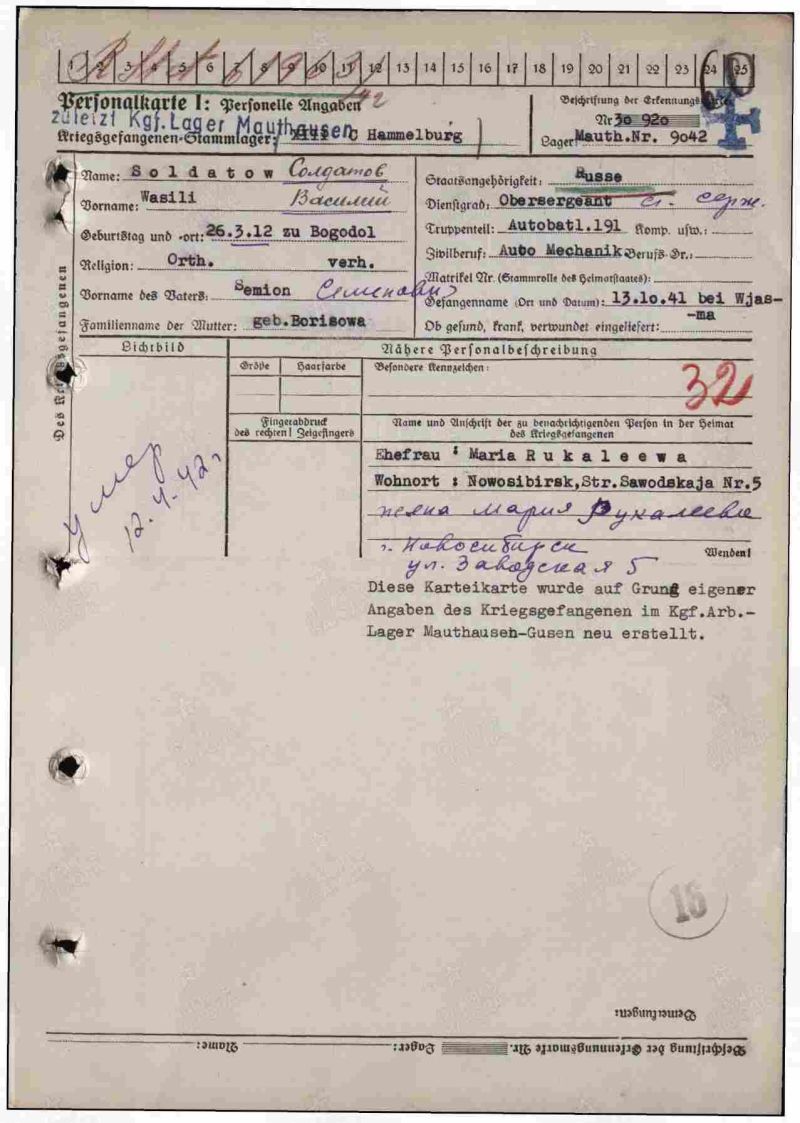 1 2 3 4 5 6 7 8 9 10 11 12 13 14 15 16 17 18 19 20 21 22 23 24 25
Personalkarte I: Personelle Angaben
zuletzt Kgf. Lager Mauthausen
Kriegsgefangenen-Stammlager: C Hammelburg
Beschriftung der Erkennungsmarke
Nr 30 920
Lager: Mauth.Nr. 9042
Des Kriegsgefangenen
Name: Soldatow Солдатов
Vorname: Wasili Василий
Geburtstag und -ort: 26.3.12 zu Bogodol
Religion: Orth. verh.
Vorname des Vaters: Semion Семенович
Familienname der Mutter: geb.Borisowa
Staatsangehörigkeit: Russe
Dienstgrad: Obersergeant ст. серж.
Truppenteil: Autobatl.191 Komp. usw.:
Zivilberuf: Auto Mechanik Berufs-Gr.:
Matrikel Nr. (Stammrolle des Heimatstaates):
Gefangennahme (Ort und Datum): 13.10.41 bei Wjas-
-ma
Ob gesund, krank, verwundet eingeliefert:
Lichtbild
Nähere Personalbeschreibung
Größe Haarfarbe Besondere Kennzeichen:
32
Fingerabdruck
des rechten! Zeigefingers
Name und Anschrift der zu benachrichtigenden Person in der Heimat
des Kriegsgefangenen
умер
12.4.42г
Ehefrau : Maria Rukaleewa
Wohnort : Nowosibirsk,Str.Sawodskaja Nr.5
жена Мария Рукалеева
г. Новосибирск
ул. Заводская 5
Wenden!
Diese Karteikarte wurde auf Grund eigener
Angaben des Kriegsgefangenen im Kgf.Arb.-
Lager Mauthausen-Gusen neu erstellt.
16
Bemerkungen:
Beschriftung der Erkennungsmarke Nr. Lager: Name: